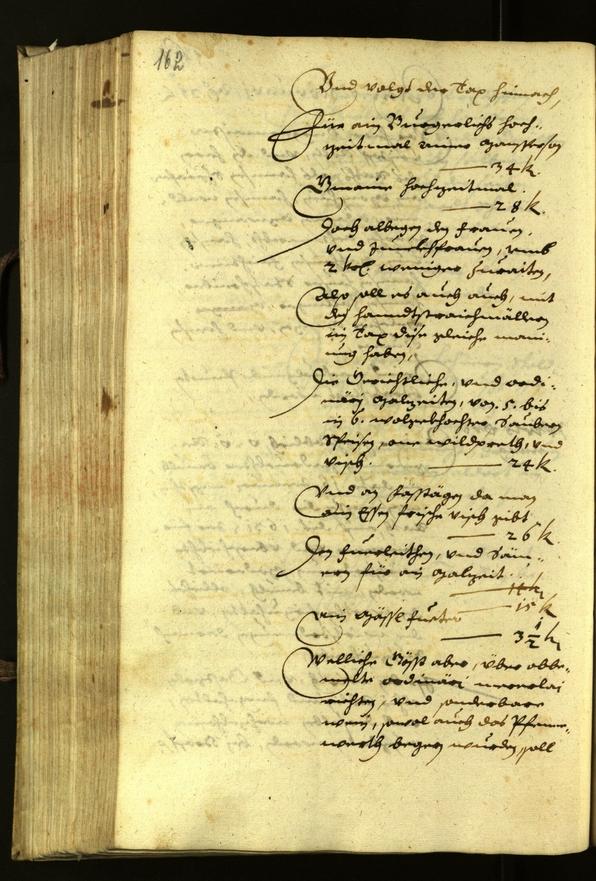 162
Und volgt der Tax hinach,
Für ain Burgerlichs hoch-
zeitmal ainer Manßperson
34 k.
hochzeitmal.
28 k.
Doch albegen den Frauen,
und Junckhfrauen, umb
2 krl. weniger zuraiten,
Also soll es auch auch, mit
den handtstraichmällern
im Tax dise gleiche main-
ung haben,
Die Gerichtliche, und ordi-
närj malzeiten, von 5. bis
in 6. wolgekhochter Saubern
Speisen, one wildpreth, und
visch. 24 k.
Und an Fasstägen da man
ain Essen frische visch gibt
26 k.
Den Fuerleithen, und Säm-
ern für ain malzeit
15 k
ain Mässl fueter
3 1/2 k
Welliche Gösst aber, über obbe-
melte ordinäri
richten, und sonderbare
wein, sowol auch das Pfenn-
werth begern wurden, soll